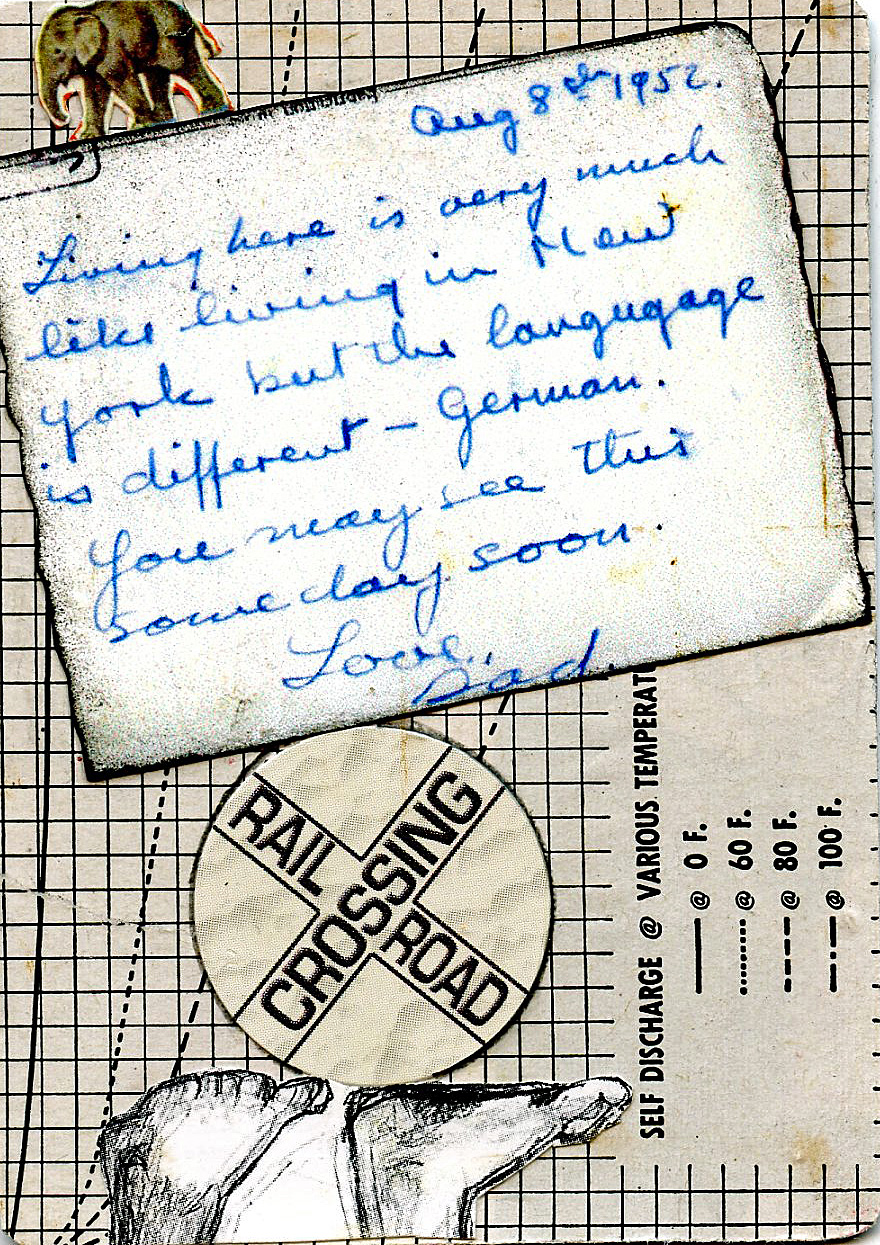 Aug 8th 1952.
Living here is very much
like living in New
York but the langugage
is different - German.
You may see this
someday soon.
Love,
Dad.
RAIL ROAD
CROSSING
SELF DISCHARGE @ VARIOUS TEMPERAT
@ 0 F.
@ 60 F.
@ 80 F.
@ 100 F.